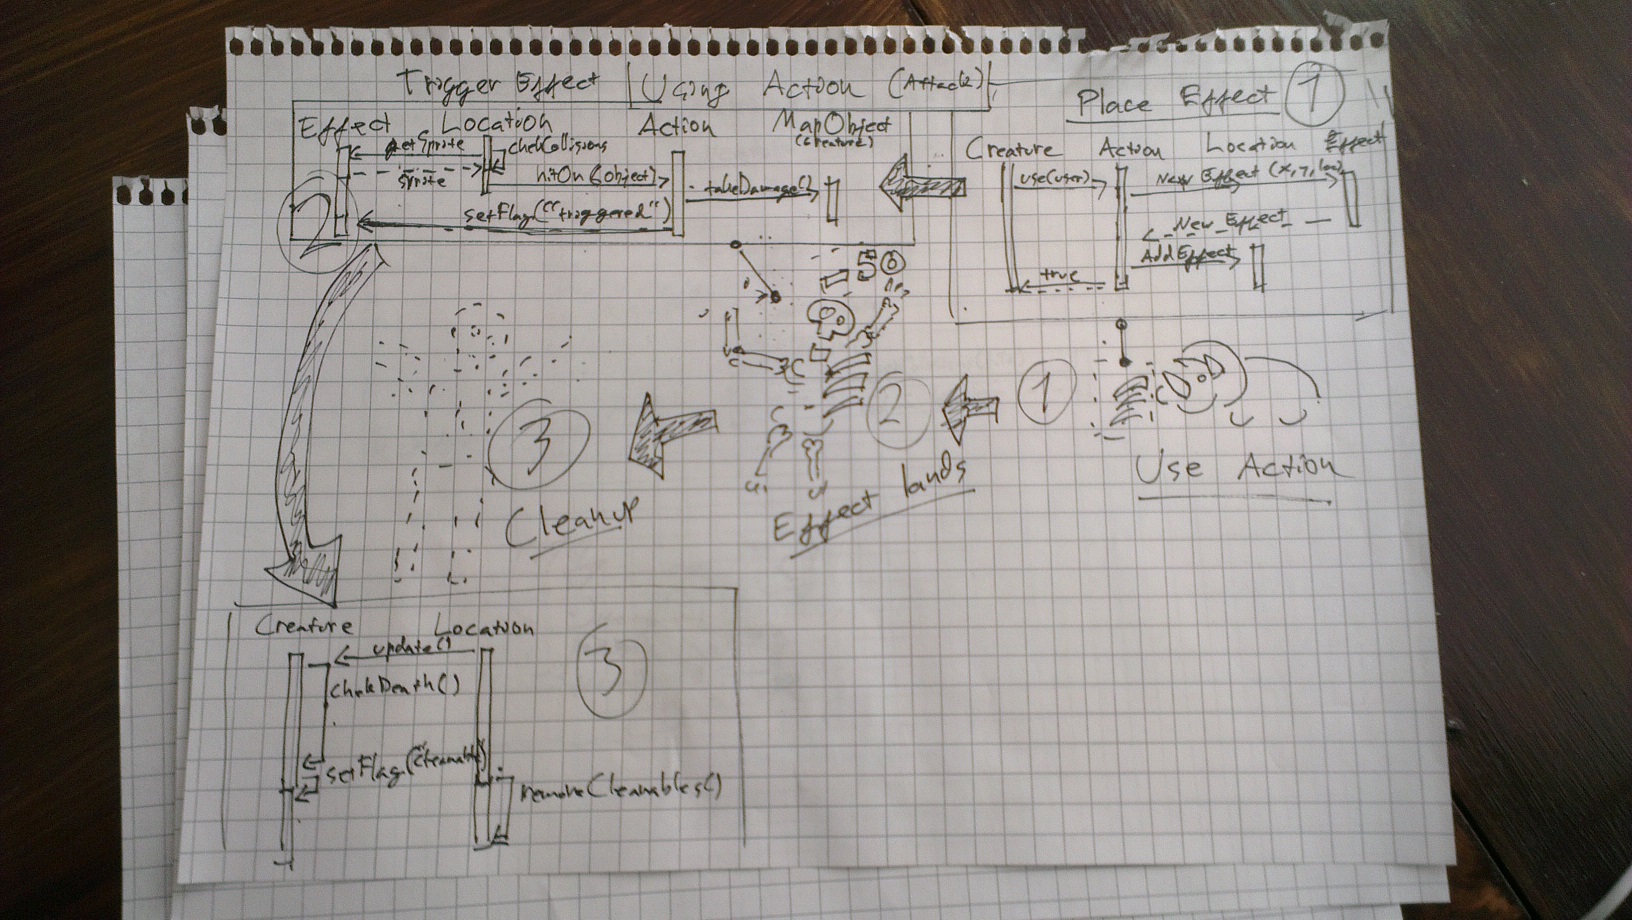 Trigger Effect | Using Action (Attack)
Effect Location Action MapObject
(Creature)
getSprite
chekCollisions
sprite
hitOn(object)
takeDamage()
setFlag("triggered")
2
Place Effect 1
Creature Action Location Effect
use(user)
New Effect (x, y, loc)
New Effect
Add Effect
true
50
1
Use Action
2
Effect lands
3
Cleanup
Creature Location
3
update()
chekDeath()
setFlag("cleanable")
removeCleanables()